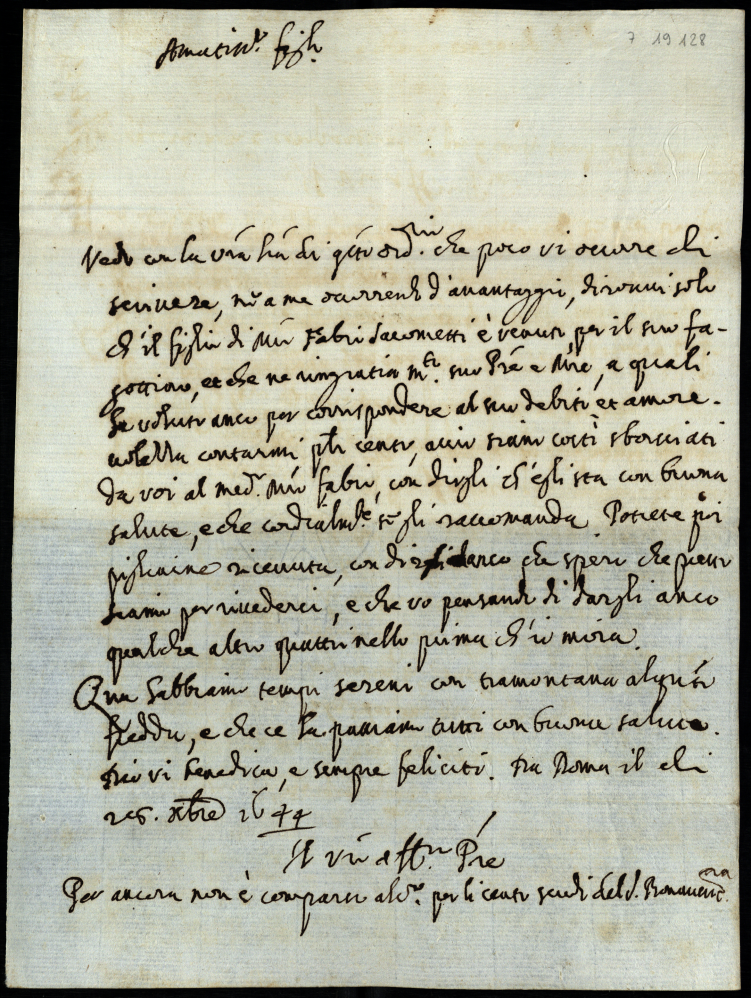 7 19 128
Amatis.o figl.o
Vedo con la vr̃a hũ di q̃sto ord.rio che poco vi occorre di
scrivere, nẽ a me occorrendo d'avantaggio, dironvi solo
ch'il figlio di Mr̃ Fabri Jacometti è venuto per il suo fa-
gottino, et che ne ringratia m.to suo Prẽ e Mrẽ, a quali
ha voluto anco per corrispondere al suo debito et amore-
volezza contarmi q̃li cento, acciò siano costì sborsciati
da voi al med.o Mr̃ Fabri, con dirgli ch'egli sta con buona
salute, e che cordialm.te sẽ gli raccomanda Potrete poi
pigliarne ricevuta, con dirgli anco che spero che presto
siamo per rivederci, e che vo pensando di dargli anco
qualche altro quattrinello prima ch'io mora.
Qua habbiamo tempi sereni con tramontana alq̃to
fredda, e che ce la passiamo tutti con buona salute.
Dio vi benedica, e sempre feliciti. Da Roma il di
26. Xbrẽ 1644
Il vr̃o aff.mo Prẽ
Per ancora non è comparso alc.no per li cento scudi del S. Bonaventũra.